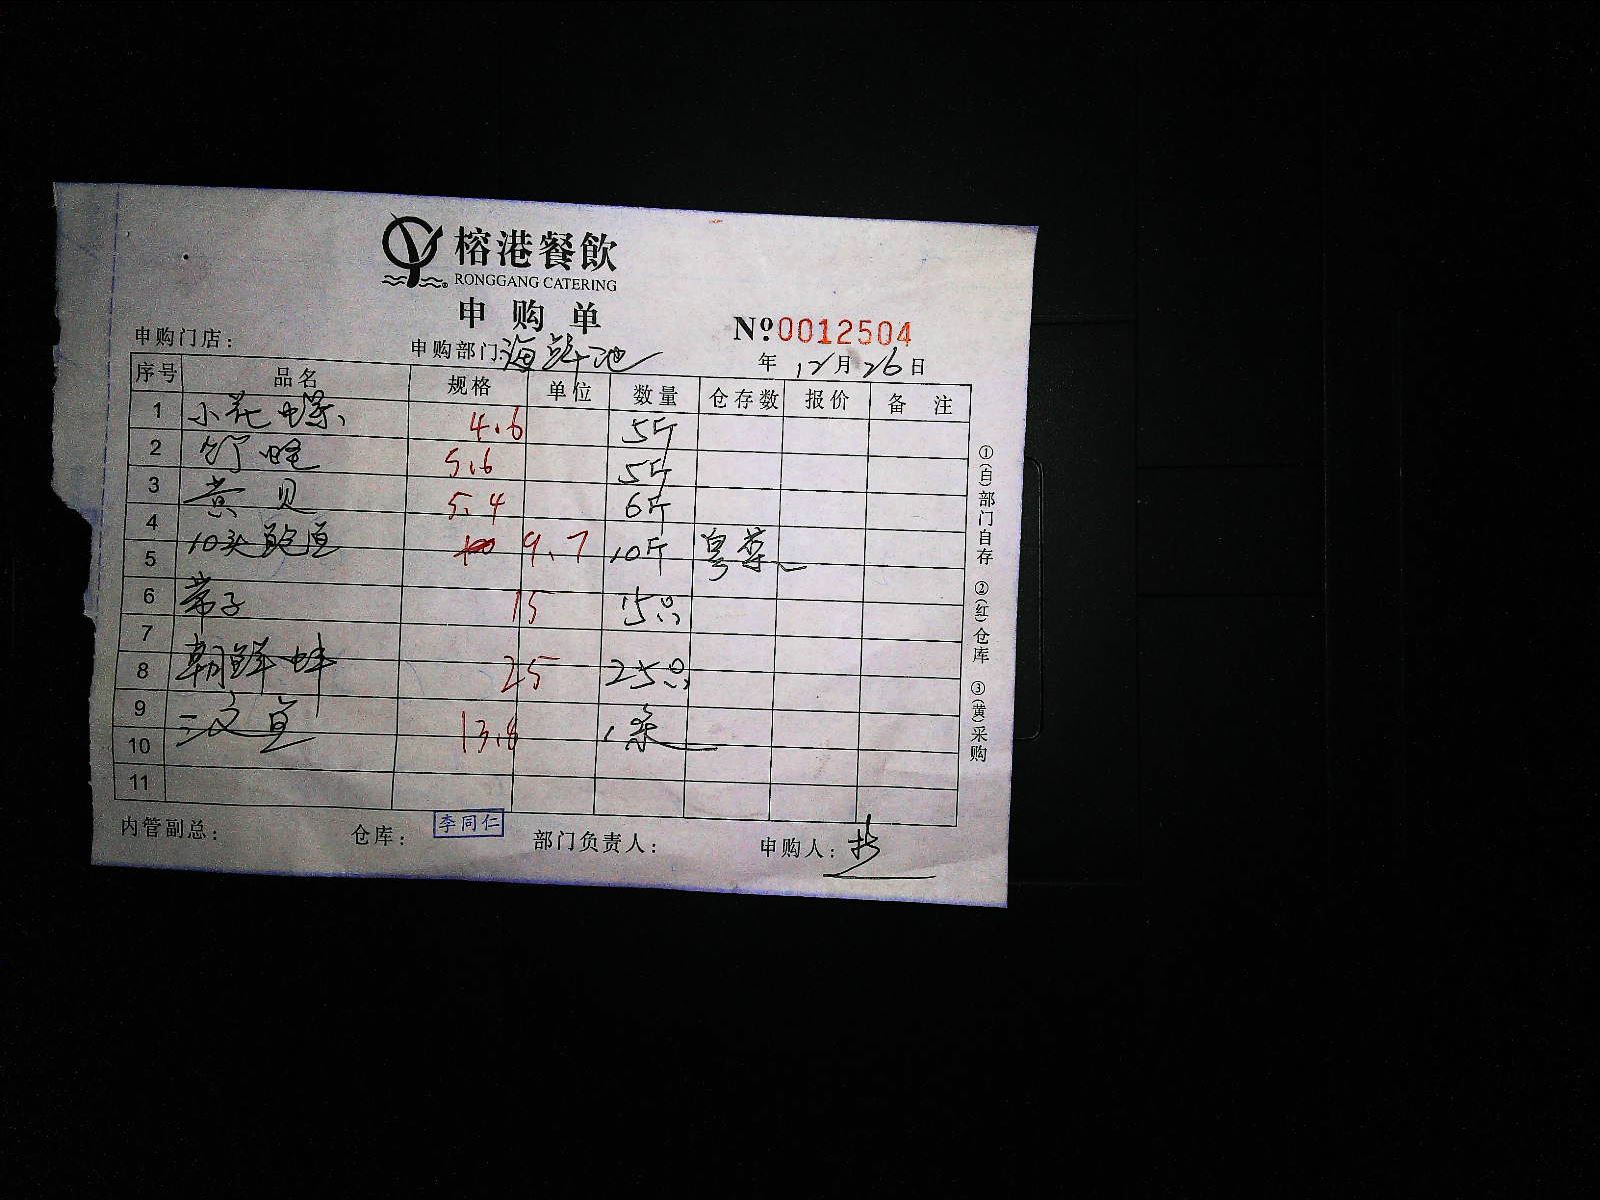 榕港餐飲
RONGGANG CATERING
申购单
№0012504
申购门店：
申购部门：海鲜池
年 12月26日
序号 品名 规格 单位 数量 仓存数 报价 备注
1 小花螺 4.6 5斤
2 竹蛏 5.6 5斤
3 黄贝 5.4 6斤
4
5 10头鲍鱼 9.7 10斤 粤菜
6 带子 15 15只
7
8 朝鲜蚌 25 25只
9
10 三文鱼 13.8 1条
11
①(白)部门自存 ②(红)仓库 ③(黄)采购
内管副总： 仓库： 李同仁 部门负责人： 申购人：